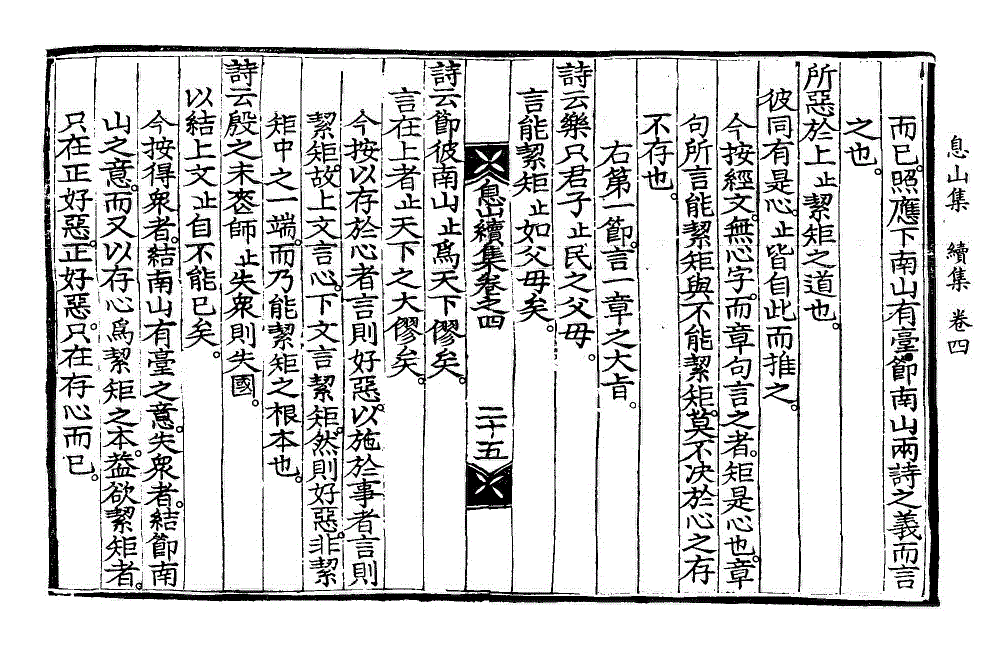 息山集　續集　卷四
而已。照應下南山有臺節南山兩詩之義而言
之也。
所惡於上止絜矩之道也。
彼同有是心。止皆自此而推之。
今按經文。無心字。而章句言之者。矩是心也。章
句所言能絜矩與不能絜矩。莫不決於心之存
不存也。
右第一節。言一章之大旨。
詩云樂只君子止民之父母。
言能絜矩止如父母矣。
息山續集卷之四　二十五
詩云節彼南山止爲天下僇矣。
言在上者止天下之大僇矣。
今按以存於心者言則好惡。以施於事者言則
絜矩。故上文言心。下文言絜矩。然則好惡。非絜
矩中之一端。而乃能絜矩之根本也。
詩云殷之未喪師止失衆則失國。
以結上文止自不能已矣。
今按得衆者。結南山有臺之意。失衆者。結節南
山之意。而又以存心爲絜矩之本。葢欲絜矩者。
只在正好惡。正好惡。只在存心而已。